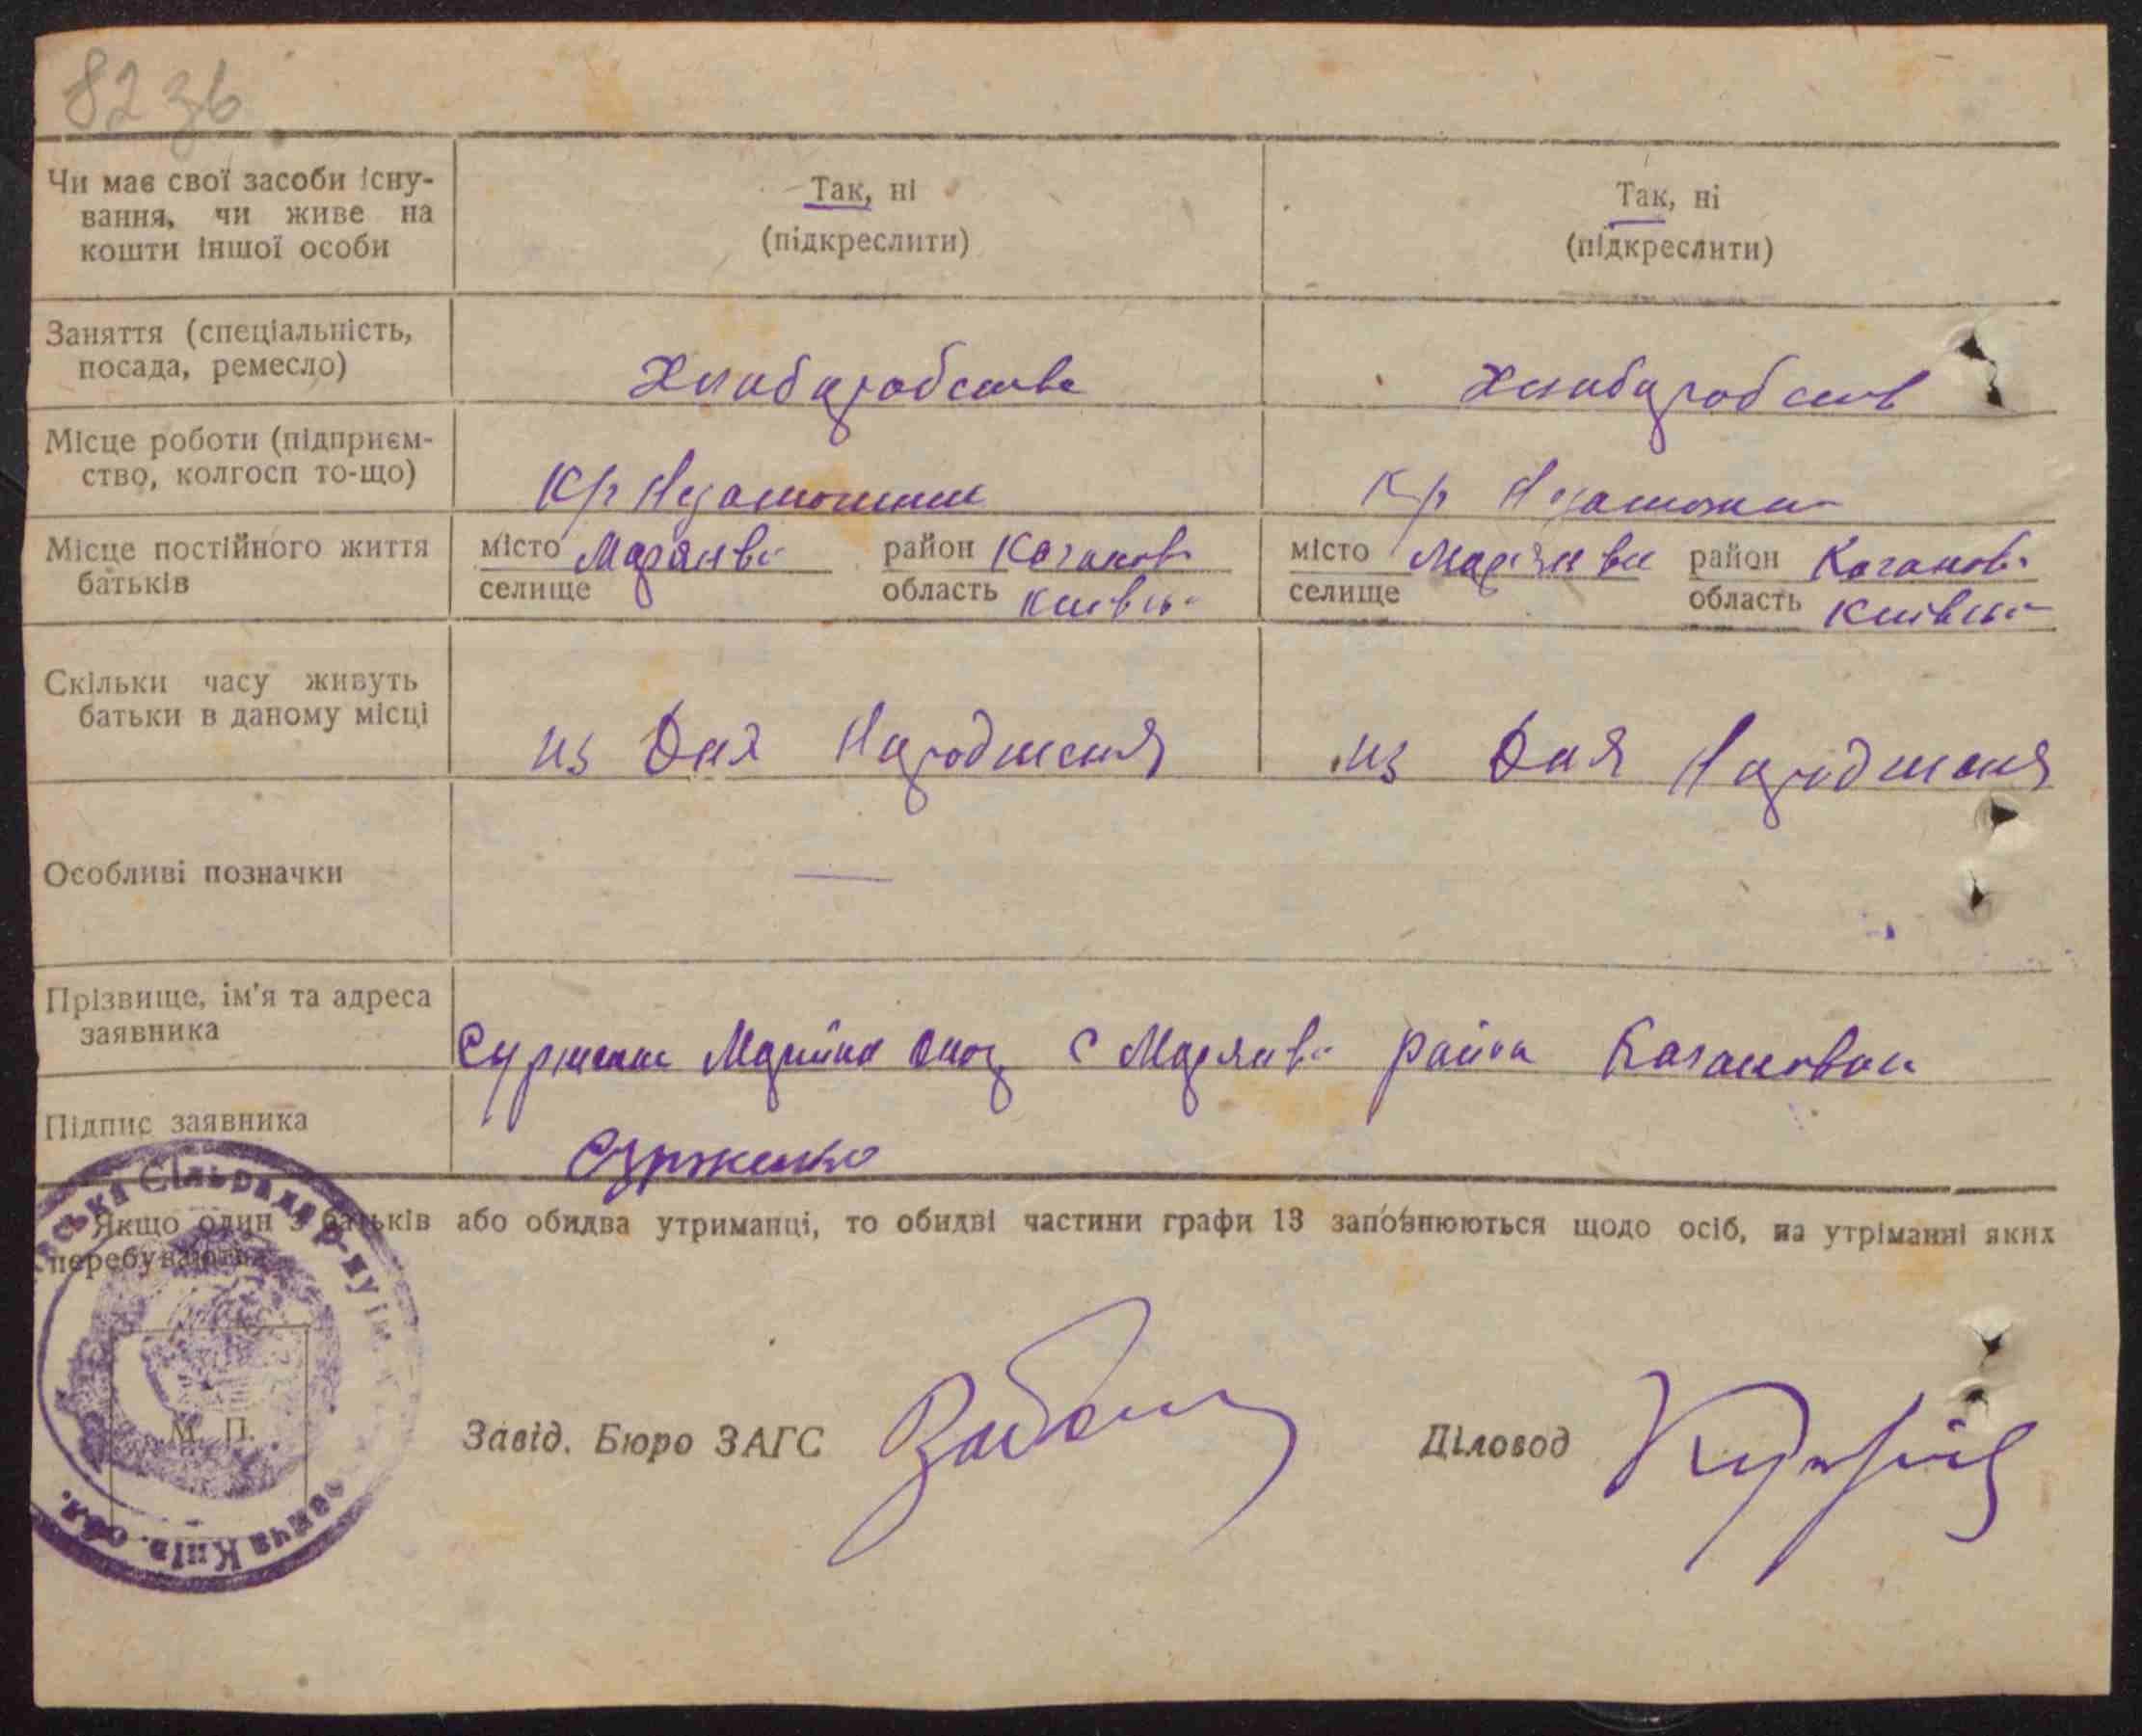 82 зв
Чи має свої засоби існу-
вання, чи живе на
кошти іншої особи
Так, ні
(підкреслити)
Так, ні
(підкреслити)
Заняття (спеціальність,
посада, ремесло)
Хлибаробства
Хлибаробств
Місце роботи (підприєм-
ство, колгосп то-що)
К/г Незаможник
К/г Незаможн
Місце постійного життя
батьків
місто Марянвс район Каганов
селище область Київсь
місто Марянвк район Каганов
селище область Київсь
Скільки часу живуть
батьки в даному місці
из Дня Народженя
из Дня Народженя
Особливі позначки
—
Прізвище, ім'я та адреса
заявника
Сурженк Марийка с Марянв район Каганован
Підпис заявника
Сурженко
Якщо один з батьків або обидва утриманці, то обидві частини графи 13 заповнюються щодо осіб, на утріманні яких
перебувають.
ська Сільрада р-ну ім
М. П.
Завід. Бюро ЗАГС
Діловод
вича Київ. обл.